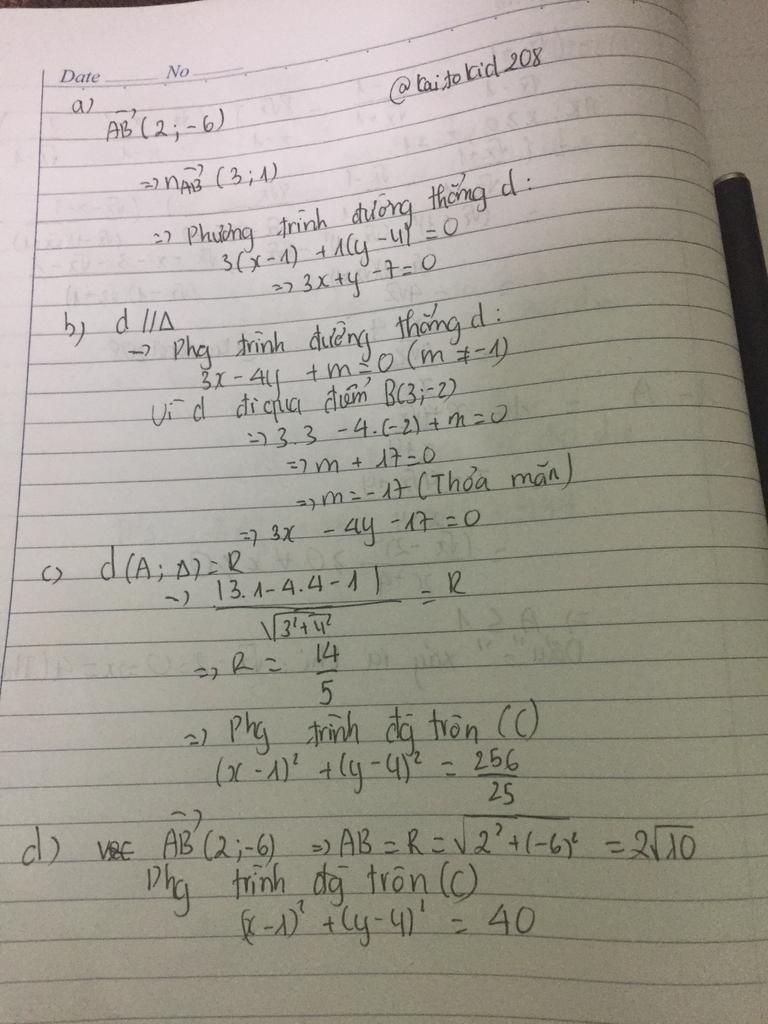 Date No
@kaitokid208
a)
AB→(2;-6)
=> nAB→ (3;1)
=> Phương trình đường thẳng d:
3(x-1) + 1(y-4) = 0
=> 3x+y-7=0
b) d // Δ
-> Phg trình đường thẳng d:
3x-4y +m=0 (m ≠-1)
Vì d đi qua điểm B(3;-2)
=> 3.3 - 4.(-2) + m=0
=> m + 17=0
=> m=-17 (Thỏa mãn)
=> 3x - 4y -17 =0
c) d(A; Δ)=R
=> |3.1-4.4-1| / √3²+4² = R
=> R = 14/5
=> Phg trình đg tròn (C)
(x-1)² +(y-4)² = 256/25
d) AB→(2;-6) => AB = R = √2²+(-6)² = 2√10
Phg trình đg tròn (C)
(x-1)² +(y-4)² = 40